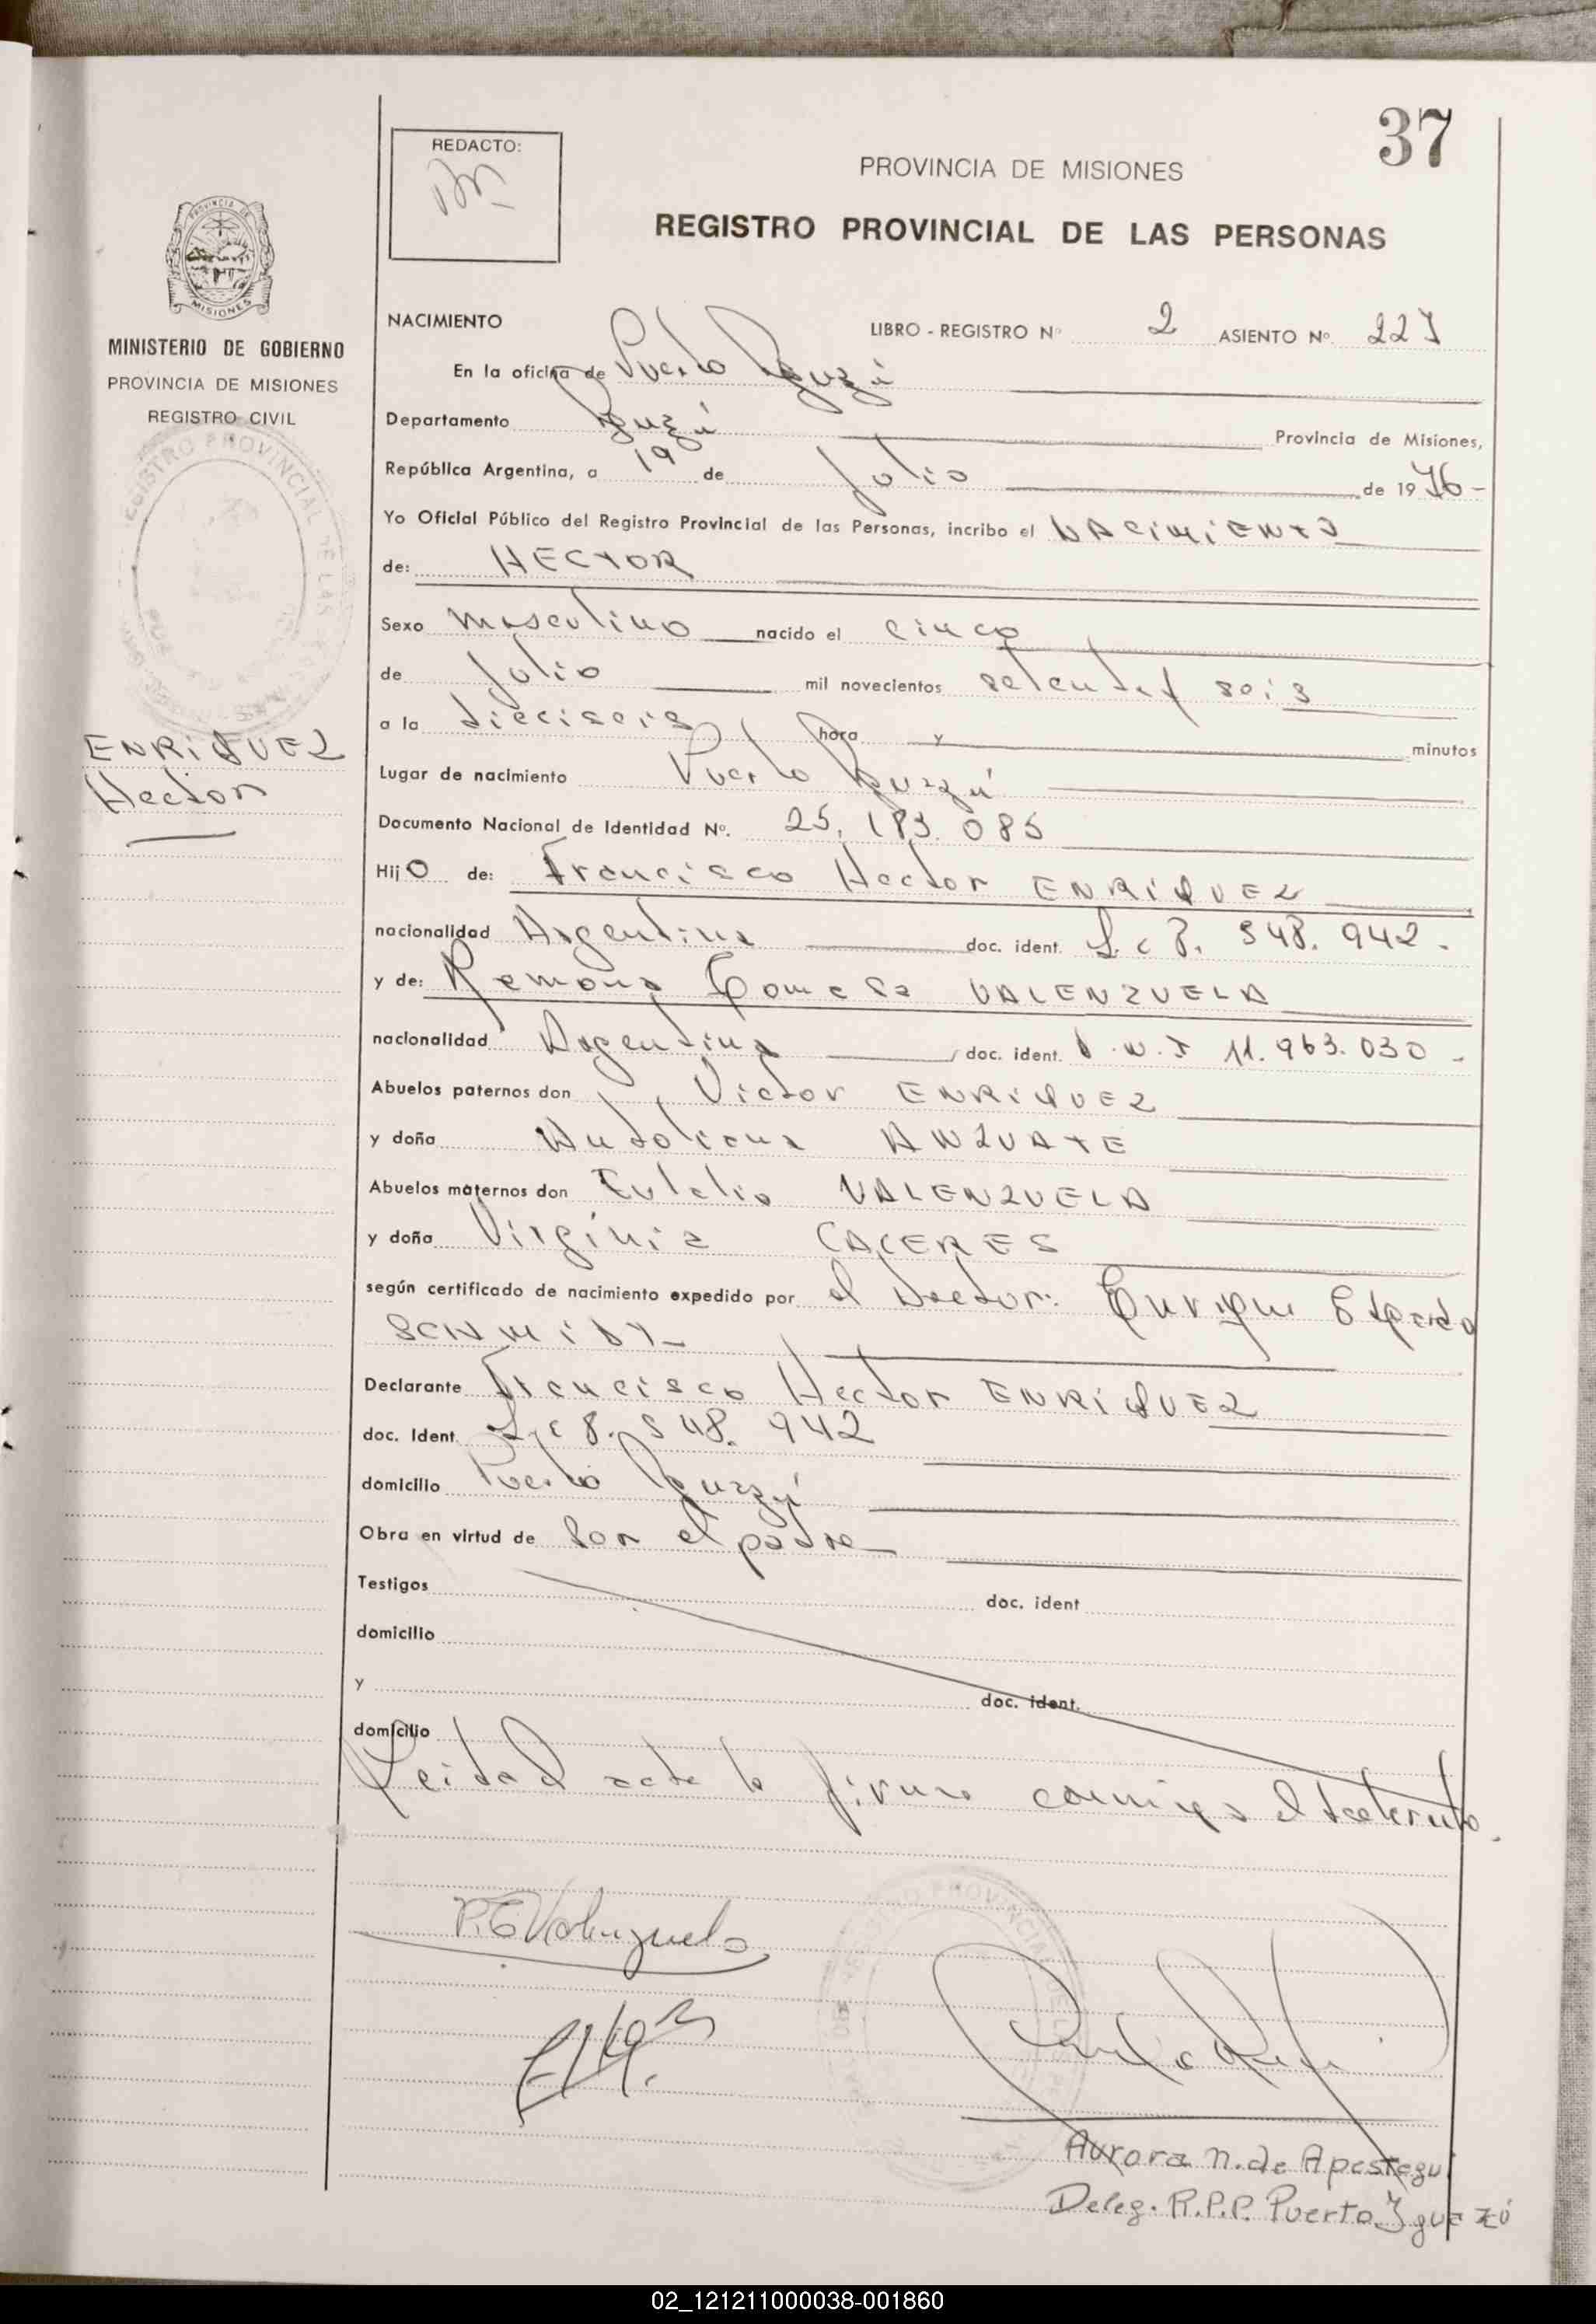 37
REDACTO:
PROVINCIA DE MISIONES
REGISTRO PROVINCIAL DE LAS PERSONAS
PROVINCIA DE
MISIONES
MINISTERIO DE GOBIERNO
PROVINCIA DE MISIONES
REGISTRO CIVIL
REGISTRO PROVINCIAL DE LAS
ENRIQUEZ
Hector
NACIMIENTO LIBRO - REGISTRO Nº 2 ASIENTO Nº. 227
En la oficina de Puerto Iguazú
Departamento Iguazú Provincia de Misiones,
República Argentina, a 19 de Julio de 1976-
Yo Oficial Público del Registro Provincial de las Personas, incribo el NACIMIENTO
de: HECTOR
Sexo Masculino nacido el cinco
de Julio mil novecientos setenta y seis
a la dieciseis hora y minutos
Lugar de nacimiento Puerto Iguazú
Documento Nacional de Identidad Nº. 25.183.085
Hijo de: Francisco Hector ENRIQUEZ
nacionalidad Argentina doc. ident. L.E 8.548.942.
y de: Ramona VALENZUELA
nacionalidad Argentina doc. ident. D.N.I 11.963.030-
Abuelos paternos don Victor ENRIQUEZ
y doña
Abuelos maternos don Eulalio VALENZUELA
y doña Virginia CACERES
según certificado de nacimiento expedido por el Doctor: Enrique
SCHMIDT-
Declarante Francisco Hector ENRIQUEZ
doc. Ident. L.E 8.548.942
domicilio Puerto Iguazú
Obra en virtud de Ser el padre
Testigos doc. ident
domicilio
y doc. ident.
domicilio
Leida el acta la firman conmigo el declarante.
R.T.Valenzuela
Aurora N. de Apestegui
Deleg. R.P.P. Puerto Iguazú
02_121211000038-001860